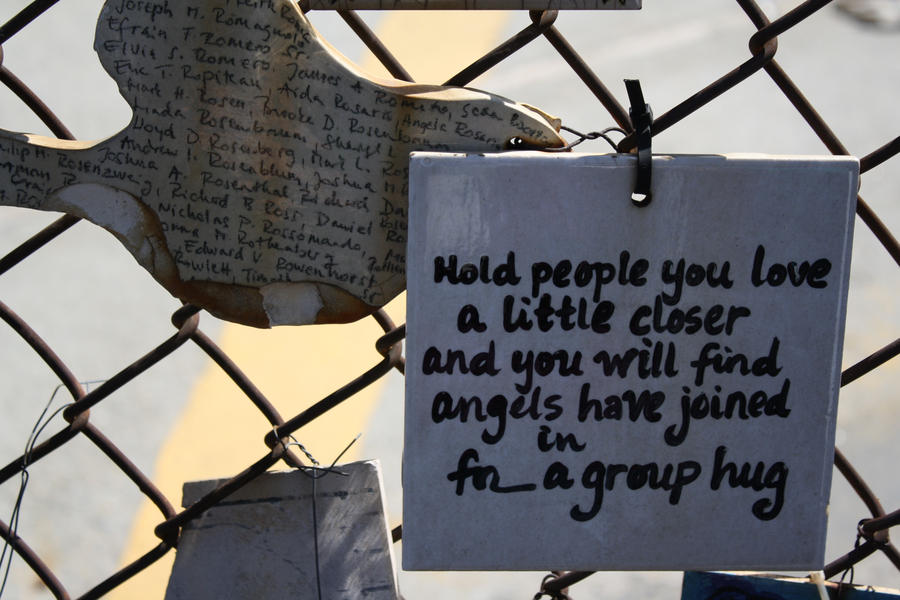 Joseph M. Romagnolo
Efrain F. Romero Sr.
Elvin S. Romero, James A Romito, Sean
Eric T. Ropiteau Aida Rosario Angela Rosen
Mark H. Rosen, Brooke D. Rosenb
Linda Rosenbaum, Sheryl
Lloyd D. Rosenberg, Mark L
Andrew I. Rosenblum, Joshua M
Philip M. Joshua A. Rosenthal Richard Da
Rosenzweig, Richard B Ross Daniel
Craig Nicholas P. Rossomando,
Donna M Rothenberg
Edward V Rowenhorst
Rowlett, Timothy
Sr
Hold people you love
a little closer
and you will find
angels have joined
in
for a group hug